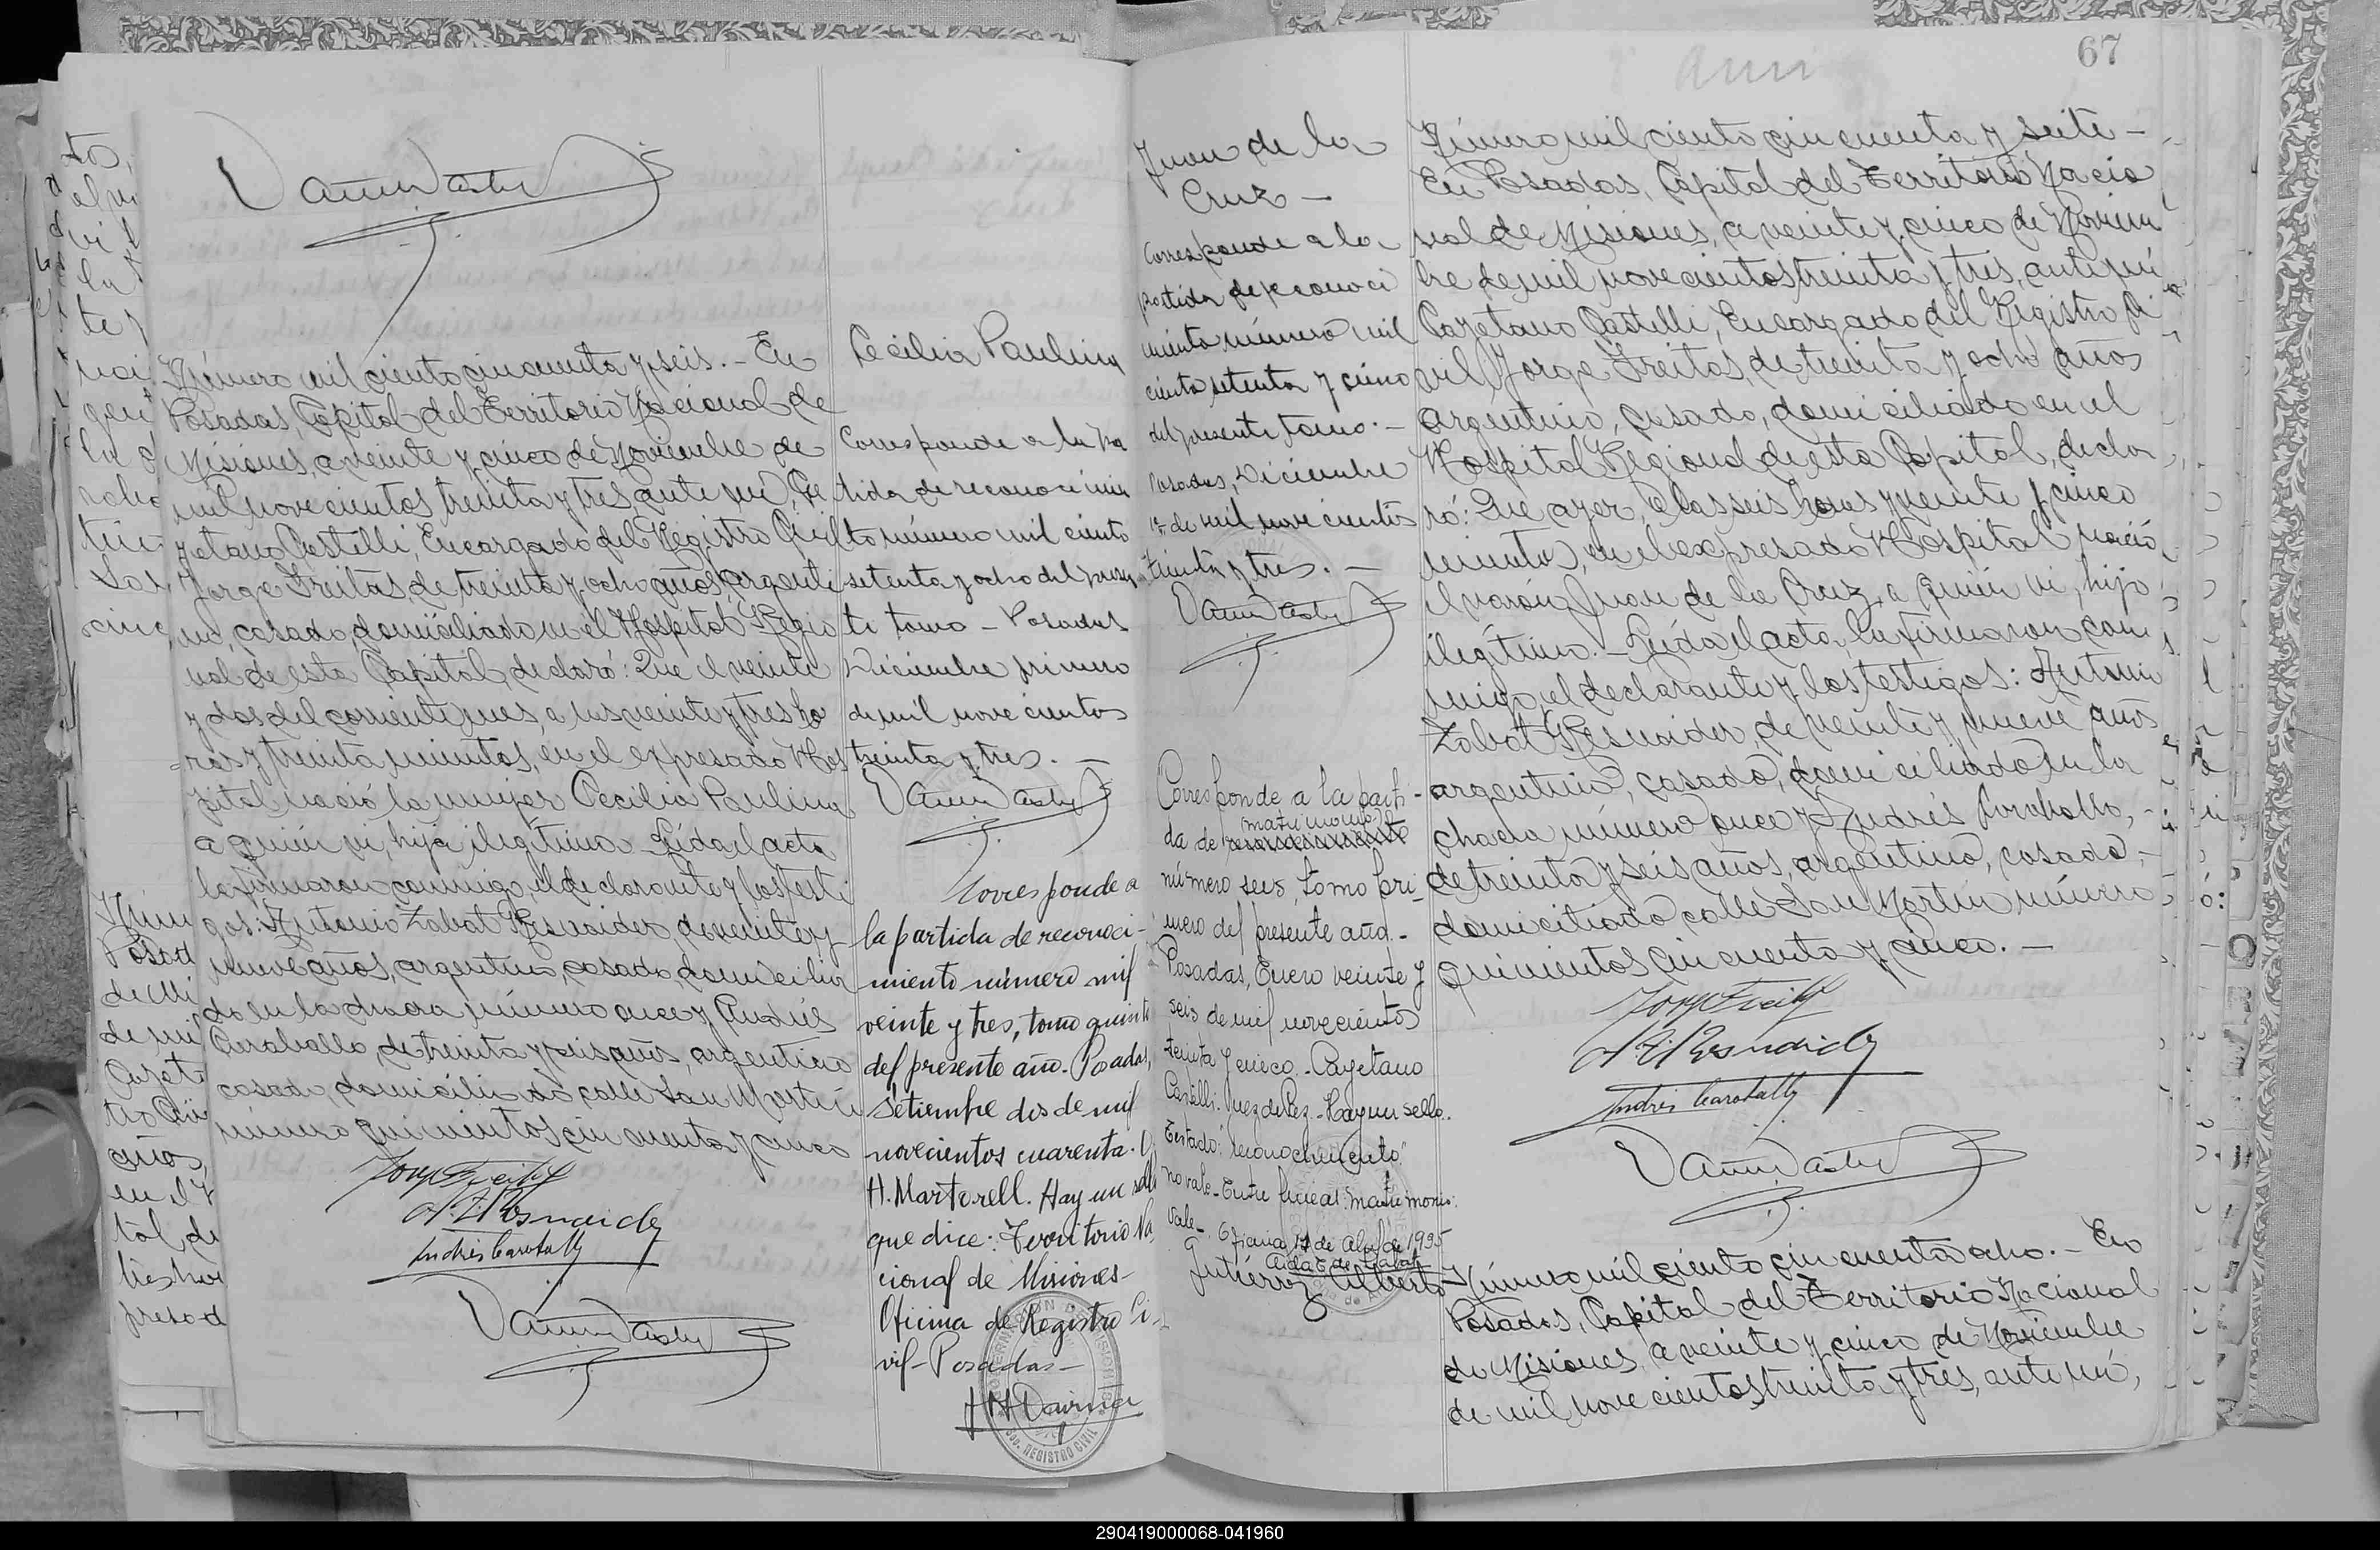 Número mil ciento cincuenta y seis. - En
Posadas, Capital del Territorio Nacional de
Misiones, a veinte y cinco de Noviembre de
mil novecientos treinta y tres, ante mí, Ca
yetano Castelli, Encargado del Registro Civil
Jorge Freitas, de treinta y ocho años, argenti
no, casado, domiciliado en el Hospital Regio
nal de esta Capital, declaró: Que el veinte
y dos del corriente mes, a las veinte y tres ho
ras y treinta minutos, en el expresado Hos
pital nació la mujer Cecilia Paulina
a quien vi, hija ilegítima. Leída el acta
la firmaron conmigo, el declarante y los testi
gos: Antonio Zabat Resnaider, de veinte y
nueve años, argentino, casado, domicilia
do en la chacra número once y Andrés
Caraballo, de treinta y seis años, argentino
casado domiciliado calle San Martín
número quinientos cincuenta y cinco
Cecilia Paulina
Corresponde a la pa
tida de reconocimien
to número mil ciento
setenta y ocho del presen
te tomo - Posadas
Diciembre primero
de mil novecientos
treinta y tres. -
Corresponde a
la partida de reconoci-
miento número mil
veinte y tres, tomo quinto
del presente año. Posadas,
setiembre dos de mil
novecientos cuarenta.
H. Martorell. Hay un sello
que dice: Territorio Na
cional de Misiones-
Oficina de Registro Ci-
vil - Posadas -
REGISTRO CIVIL
67
Juan de la
Cruz -
Corresponde a la
partida de reconoci
miento número mil
ciento setenta y cinco
del presente tomo. -
Posadas, Diciembre
1º de mil novecientos
treinta y tres. -
Corresponde a la parti-
matrimonio
da de reconocimiento
número seis, tomo pri-
mero del presente año.-
Posadas, Enero veinte y
seis de mil novecientos
treinta y cinco. - Cayetano
Castelli. Juez de Paz. - Hay un sello.
Testado: "reconocimiento"
no vale - Entre líneas: matrimonio
Vale -
17 de Abril de 1995
Gutiérrez Alberto
Número mil ciento cincuenta y siete -
En Posadas, Capital del Territorio Nacio
nal de Misiones, a veinte y cinco de Noviem
bre de mil novecientos treinta y tres, ante mí
Cayetano Castelli, Encargado del Registro Ci
vil Jorge Freitas, de treinta y ocho años
argentino, casado, domiciliado en el
Hospital Regional de esta Capital, decla
ró: Que ayer, a las seis horas y veinte y cinco
minutos, en el expresado Hospital nació
el varón Juan de la Cruz, a quien vi, hijo
ilegítimo. - Leída el acta, la firmaron con
migo, el declarante y los testigos: Antonio
Zabat Resnaider, de veinte y nueve años
argentino, casado, domiciliado en la
chacra número once y Andrés Caraballo, -
de treinta y seis años, argentino, casado, -
domiciliado calle San Martín número
quinientos cincuenta y cinco. -
Número mil ciento cincuenta ocho. - En
Posadas, Capital del Territorio Nacional
de Misiones, a veinte y cinco de Noviembre
de mil novecientos treinta y tres, ante mí,
290419000068-041960